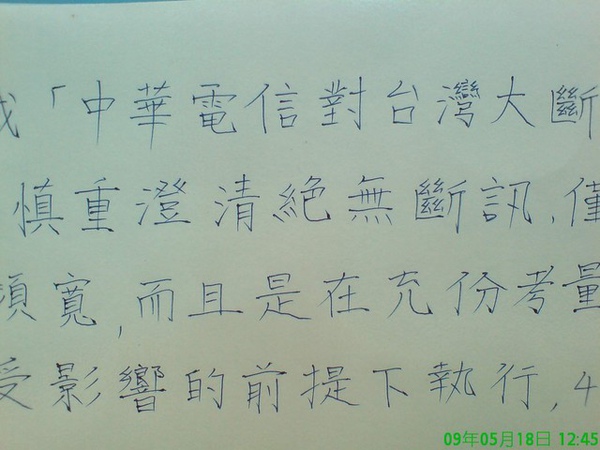 「中華電信對台灣大斷
慎重澄清絕無斷訊,僅
頻寬,而且是在充份考量
受影響的前提下執行,4
09年05月18日 12:45